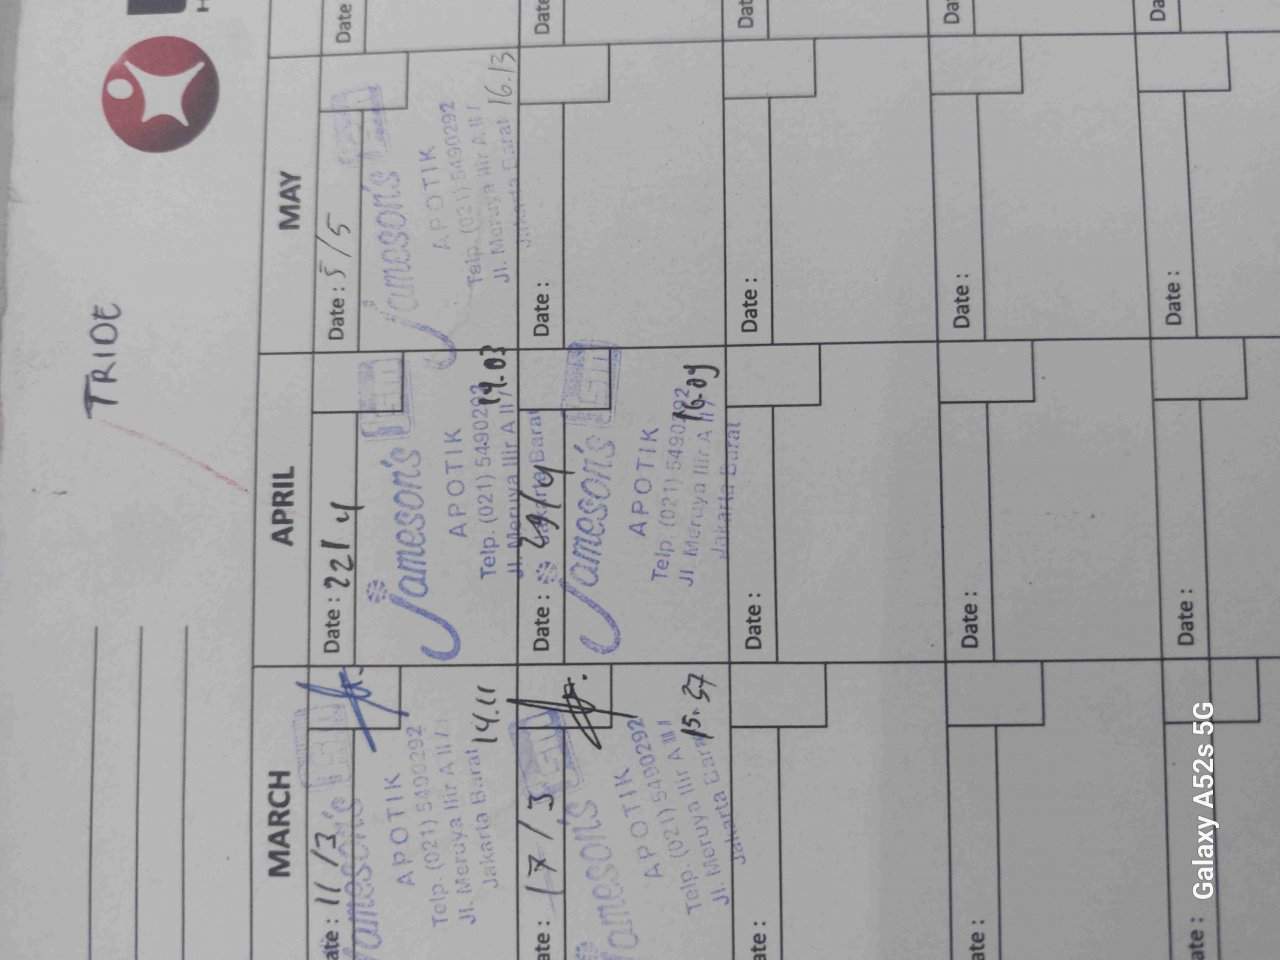 TRIDE
MARCH
APRIL
MAY
ate : 11/3
Jameson's
APOTIK
Telp. (021) 5490292
Jl. Meruya Ilir A II /
Jakarta Barat
14.11
Date : 22/4
Jameson's
APOTIK
Telp. (021) 5490292
Jl. Meruya Ilir A II /
Jakarta Barat
14.03
Date : 5/5
Jameson's
APOTIK
Telp. (021) 5490292
Jl. Meruya Ilir A II /
Jakarta Barat
16.13
Date
ate : 17/3
Jameson's
APOTIK
Telp. (021) 5490292
Jl. Meruya Ilir A II /
Jakarta Barat
15.37
Date : 29/4
Jameson's
APOTIK
Telp. (021) 5490292
Jl. Meruya Ilir A II /
Jakarta Barat
16.09
Date :
Date
ate :
Date :
Date :
Dat
ate :
Date :
Date :
Da
ate :
Date :
Date :
Da
Galaxy A52s 5G